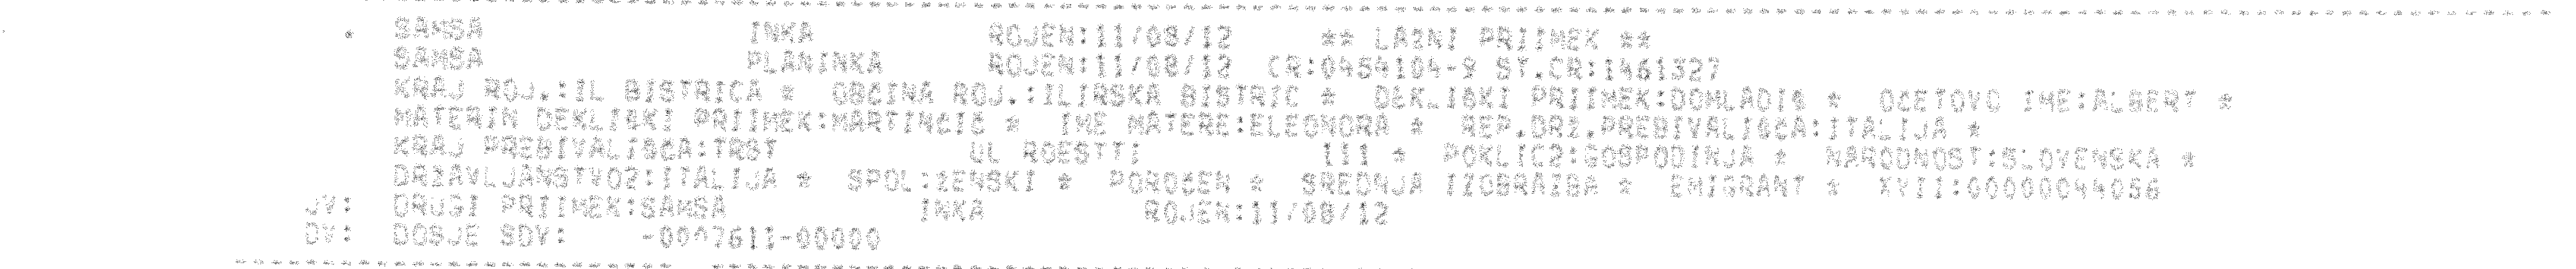 * SAMSA INKA ROJEN:11/08/12 ** LAZNI PRIIMEK **
SAMSA PLANINKA ROJEN:11/08/12 CR:0454104-9 ST.CR:1461327
KRAJ ROJ.:IL BISTRICA * OBCINA ROJ.:ILIRSKA BISTRIC * DEKLISKI PRIIMEK:DOMLADIS * OCETOVO IME:ALBERT *
MATERIN DEKLISKI PRIIMEK:MARTINCIC * IME MATERE:ELEONORA * REP.DRZ.PREBIVALISCA:ITALIJA *
KRAJ PREBIVALISCA:TRST UL ROESTTI III * POKLIC2:GOSPODINJA * NARODNOST:SLOVENSKA *
DRZAVLJANSTVO2:ITALIJA * SPOL:ZENSKI * POROCEN * SREDNJA IZOBRAZBA * EMIGRANT * XVII:0000044056
JV: DRUGI PRIIMEK:SAMSA INKA ROJEN:11/08/12
DV: DOSJE SDV: -0007611-00000